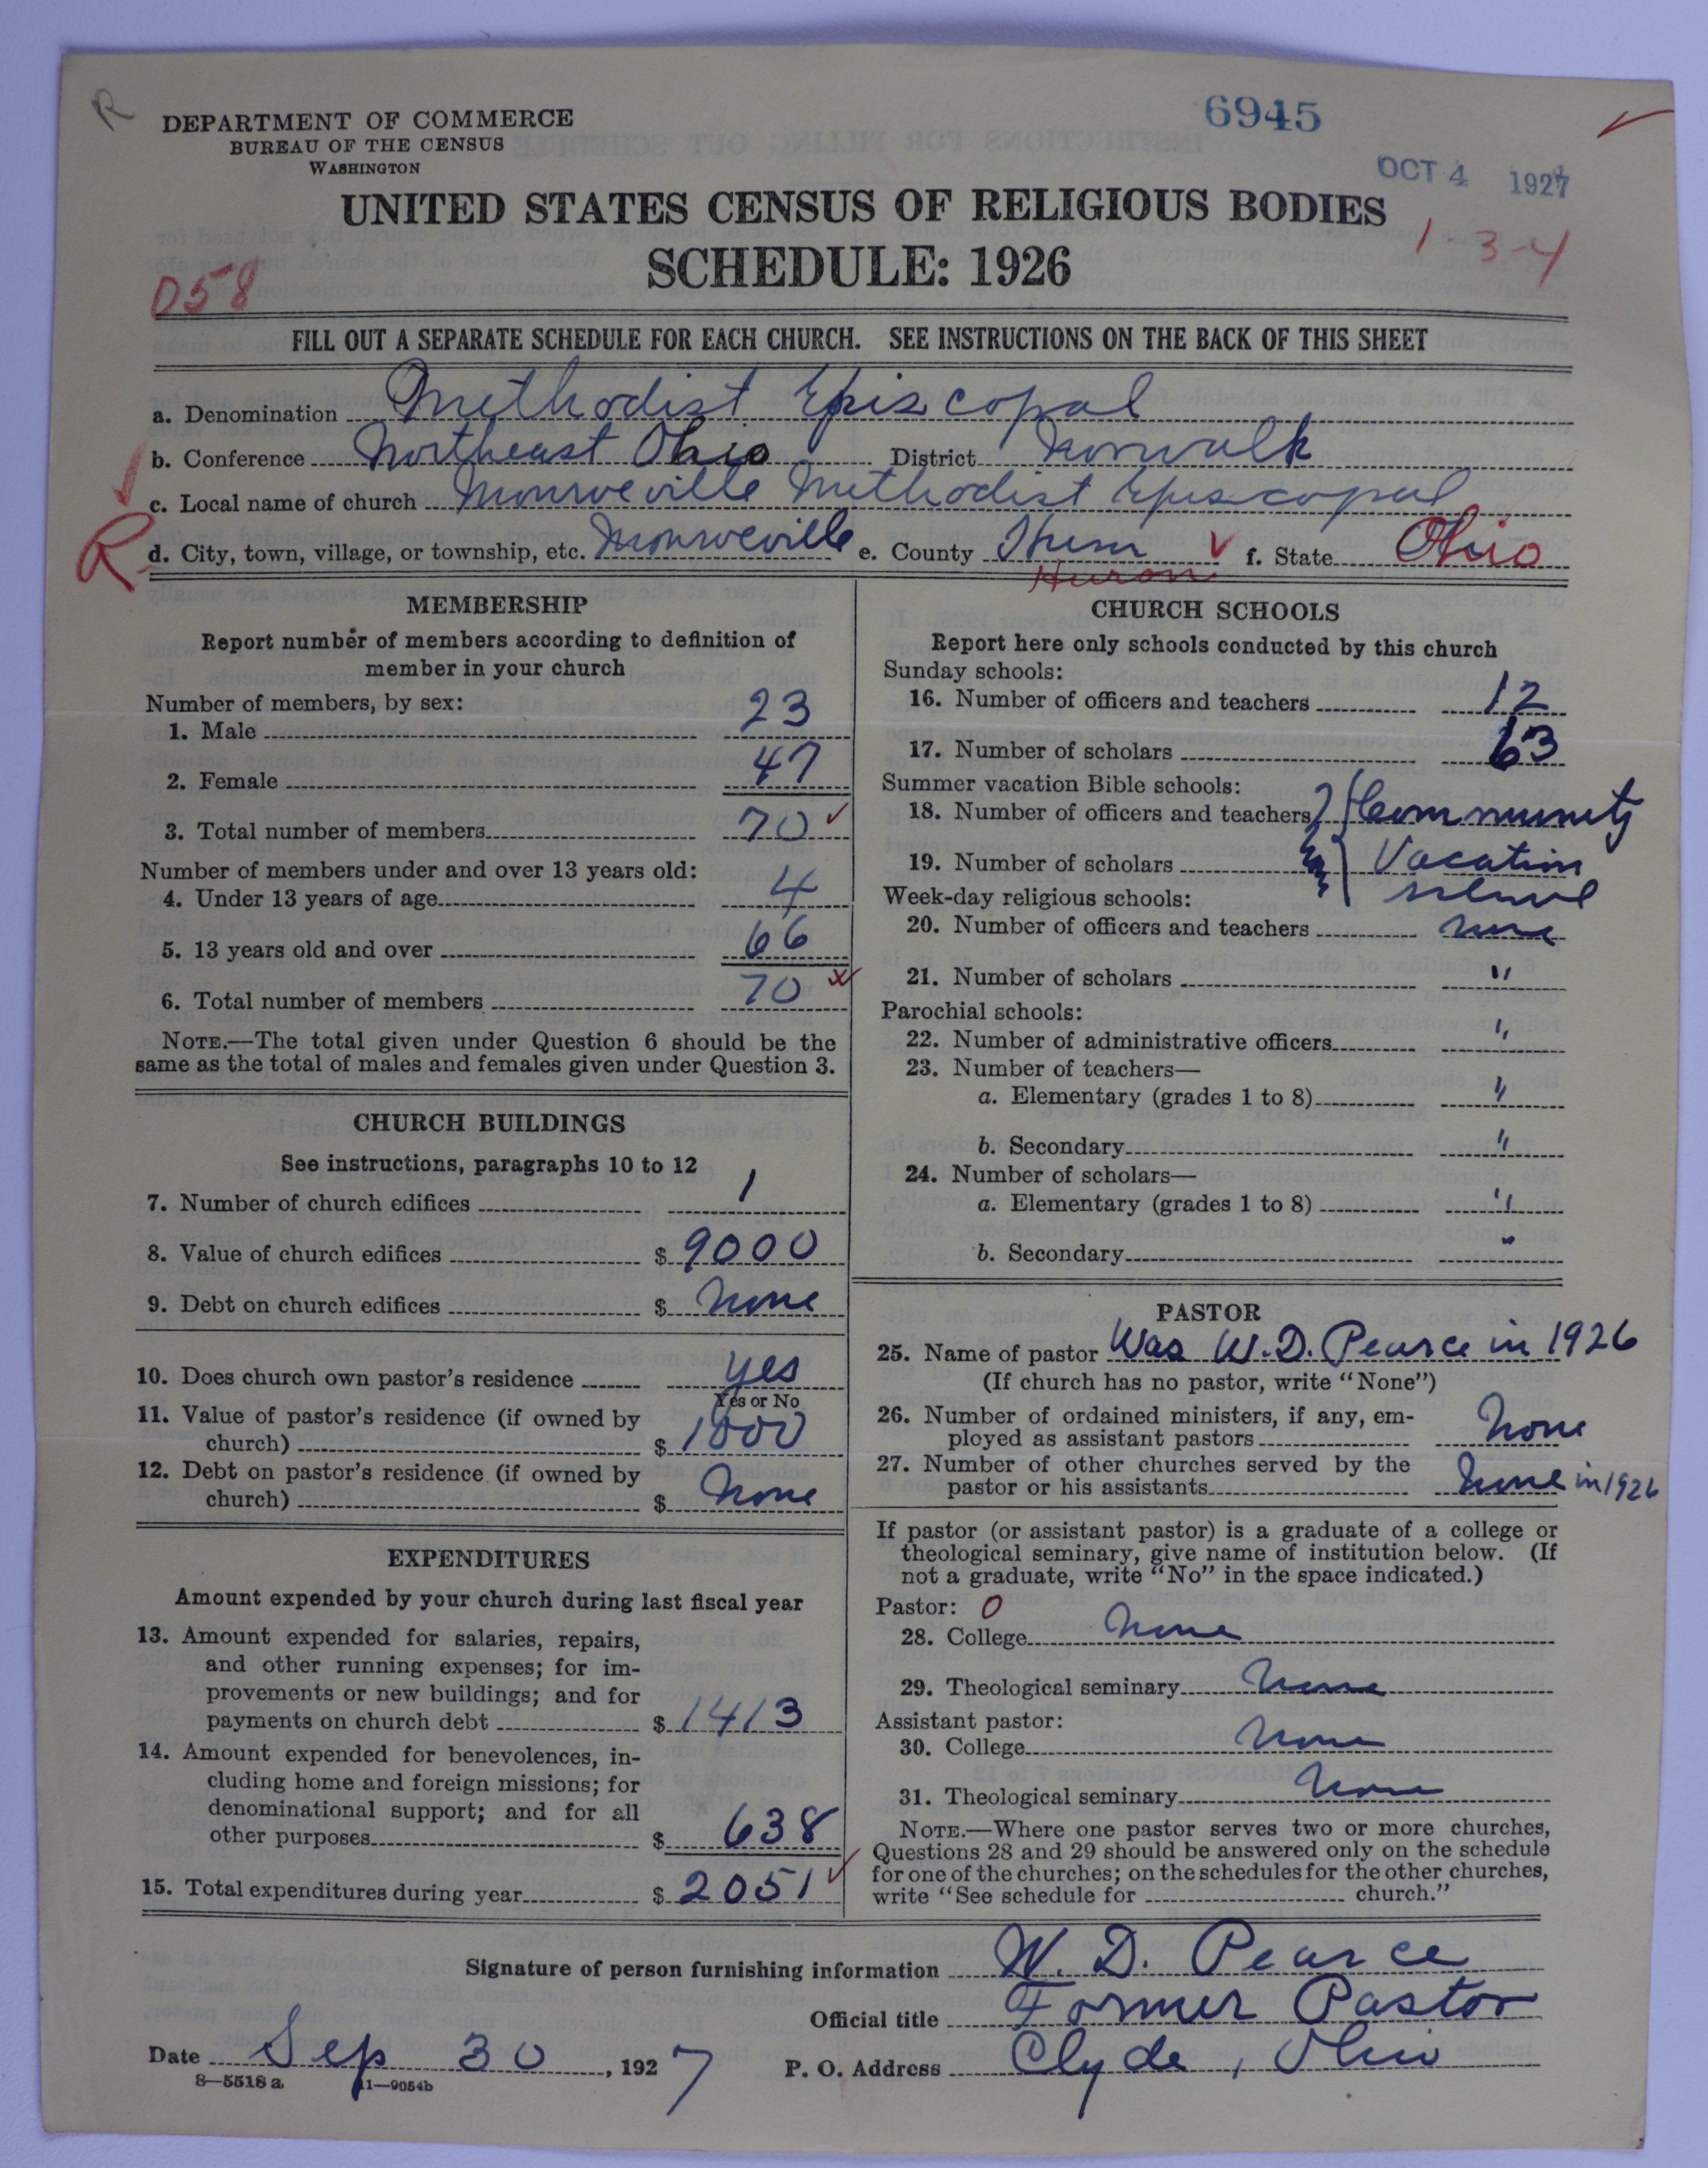 R
DEPARTMENT OF COMMERCE
BUREAU OF THE CENSUS
WASHINGTON
6945
OCT 4 1927
UNITED STATES CENSUS OF RELIGIOUS BODIES
SCHEDULE: 1926
1-3-4
058
FILL OUT A SEPARATE SCHEDULE FOR EACH CHURCH. SEE INSTRUCTIONS ON THE BACK OF THIS SHEET
a. Denomination Methodist Episcopal
b. Conference Northeast Ohio District Norwalk
c. Local name of church Monroeville Methodist Episcopal
R d. City, town, village, or township, etc. Monroeville e. County Huron f. State Ohio
Huron
MEMBERSHIP
Report number of members according to definition of
member in your church
Number of members, by sex:
1. Male 23
2. Female 47
3. Total number of members 70
Number of members under and over 13 years old:
4. Under 13 years of age 4
5. 13 years old and over 66
6. Total number of members 70
NOTE.—The total given under Question 6 should be the
same as the total of males and females given under Question 3.
CHURCH BUILDINGS
See instructions, paragraphs 10 to 12
7. Number of church edifices 1
8. Value of church edifices $ 9000
9. Debt on church edifices $ None
10. Does church own pastor's residence yes
Yes or No
11. Value of pastor's residence (if owned by
church) $ 1000
12. Debt on pastor's residence (if owned by
church) $ None
EXPENDITURES
Amount expended by your church during last fiscal year
13. Amount expended for salaries, repairs,
and other running expenses; for im-
provements or new buildings; and for
payments on church debt $ 1413
14. Amount expended for benevolences, in-
cluding home and foreign missions; for
denominational support; and for all
other purposes $ 638
15. Total expenditures during year $ 2051
CHURCH SCHOOLS
Report here only schools conducted by this church
Sunday schools:
16. Number of officers and teachers 12
17. Number of scholars 63
Summer vacation Bible schools:
18. Number of officers and teachers Community
19. Number of scholars Vacation
school
Week-day religious schools:
20. Number of officers and teachers none
21. Number of scholars "
Parochial schools:
22. Number of administrative officers "
23. Number of teachers—
a. Elementary (grades 1 to 8) "
b. Secondary "
24. Number of scholars—
a. Elementary (grades 1 to 8) "
b. Secondary "
PASTOR
25. Name of pastor Was W. D. Pearce in 1926
(If church has no pastor, write "None")
26. Number of ordained ministers, if any, em-
ployed as assistant pastors None
27. Number of other churches served by the
pastor or his assistants None in 1926
If pastor (or assistant pastor) is a graduate of a college or
theological seminary, give name of institution below. (If
not a graduate, write "No" in the space indicated.)
Pastor: 0
28. College None
29. Theological seminary None
Assistant pastor:
30. College None
31. Theological seminary None
NOTE.—Where one pastor serves two or more churches,
Questions 28 and 29 should be answered only on the schedule
for one of the churches; on the schedules for the other churches,
write "See schedule for church."
Signature of person furnishing information W. D. Pearce
Official title Former Pastor
Date Sep 30, 1927 P. O. Address Clyde, Ohio
8—5518 a 11—9054b